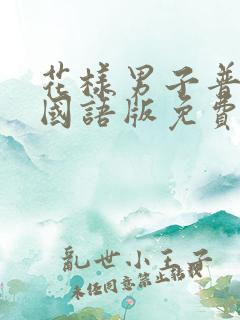 花樣男子普
國語版免費
亂世小王子
未经同意禁止转载